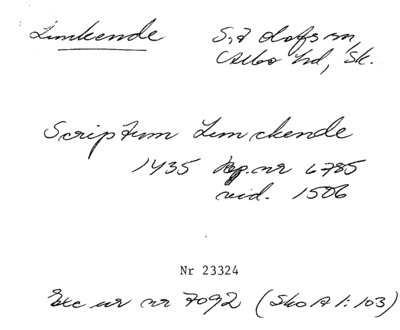 Limkende
S:t Olofs sn,
Albo hd, Sk.
Scriptum Limckende
1435 Rep. nr 6785
vid. 1506
Nr 23324
Exc ur nr 7092 (Sko A 1:103)